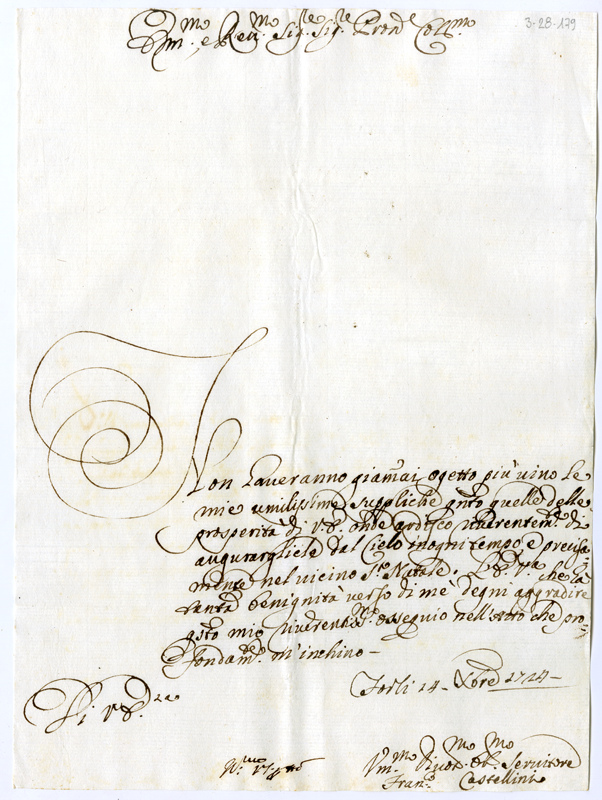 3-28-179
Em.mo e Rev.mo Sig.re Sig.re Pron.e Coll.mo
Non haveranno giamai ogetto più vivo le
mie umilissime suppliche qnto quelle delle
prosperità di V.E. onde ardisco riverentem.te di
augurargliele dal Cielo in ogni tempo, e precisa
mente nel vicino S.to Natale. che hà
tanta benignità verso di me degni aggradire
qsto mio riverentiss.mo ossequio nell'atto che pro=
fondam.te m'inchino
Forlì 14 Xbre 1724
Di V.E.za
Um.mo Divot.mo Ob.mo Servitore
Fran.co Castellini